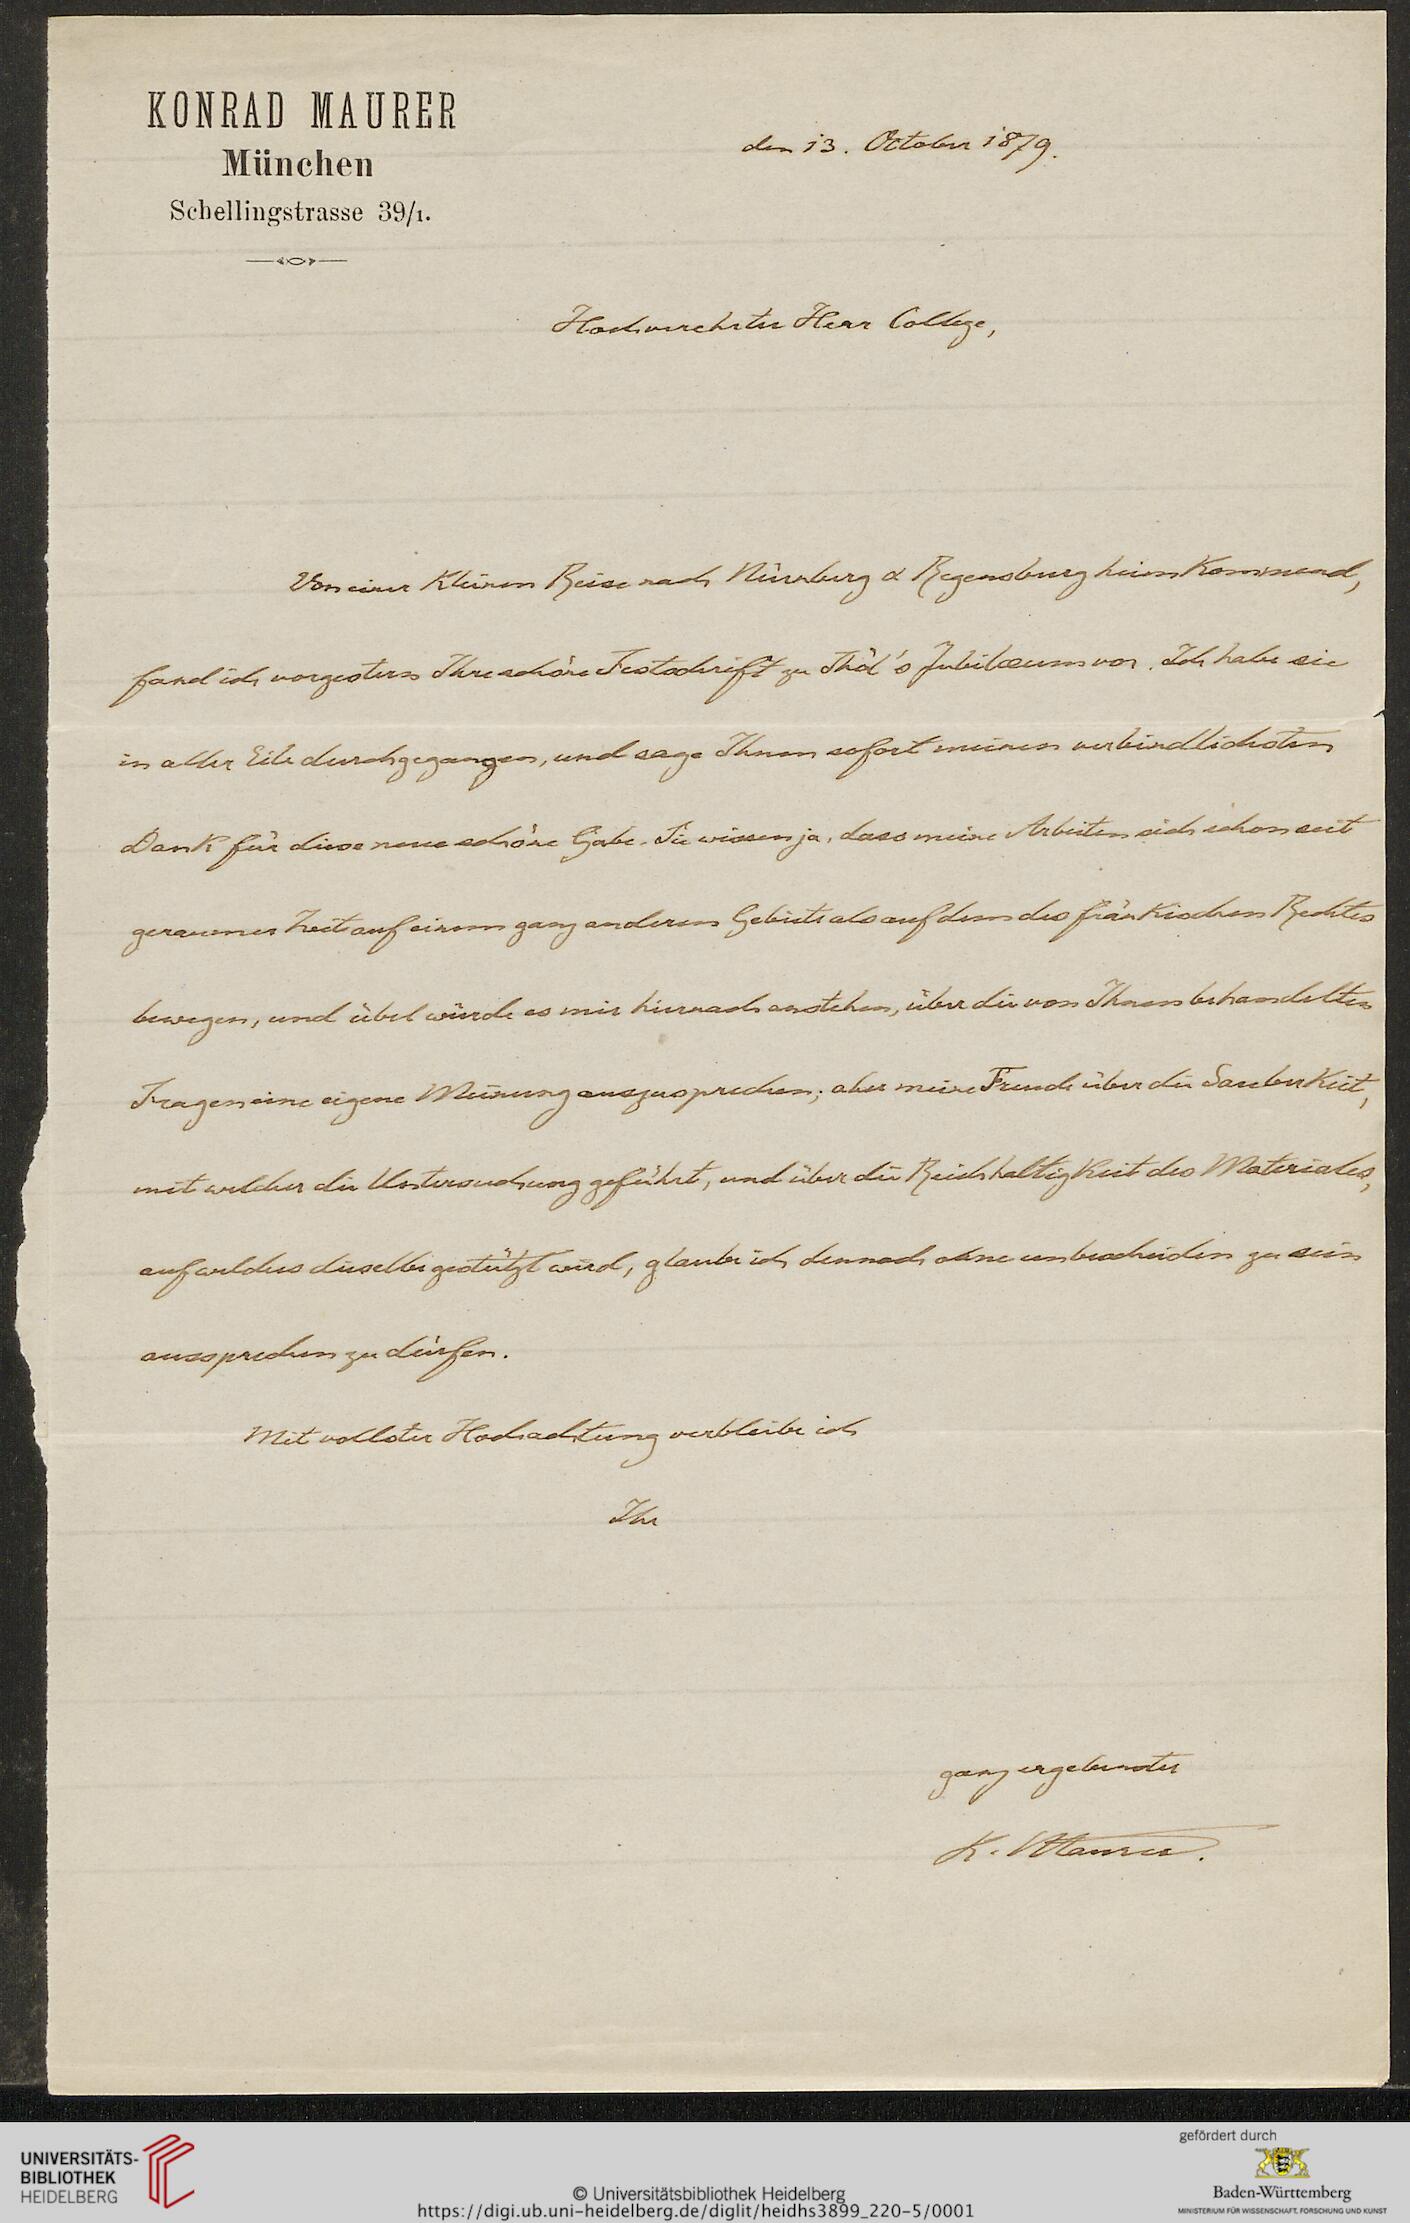 KONRAD MAURER
München
Schellingstrasse 39/1.
den 13. October 1879.
Hochverehrter Herr College,
Von einer kleinen Reise nach Nürnberg & Regensburg heimkommend,
fand ich vorgestern Ihre schöne Festschrift zu Thöl's Jubilaeum vor. Ich habe sie
in aller Eile durchgegangen, und sage Ihnen sofort meinen verbindlichsten
Dank für diese neue schöne Gabe. Sie wissen ja, dass meine Arbeiten sich schon seit
geraumer Zeit auf einem ganz anderen Gebiete als auf dem des fränkischen Rechtes
bewegen, und übel würde es mir hiernach anstehen, über die von Ihnen behandelten
Fragen eine eigene Meinung auszusprechen; aber meine Freude über die Sauberkeit,
mit welcher die Untersuchung geführt, und über die Reichhaltigkeit des Materiales,
auf welches dieselbe gestützt wird, glaube ich dennoch ohne unbescheiden zu sein
aussprechen zu dürfen.
Mit vollster Hochachtung verbleibe ich
Ihr
ganz ergebenster
K. Maurer.
UNIVERSITÄTS-
BIBLIOTHEK
HEIDELBERG
© Universitätsbibliothek Heidelberg
https://digi.ub.uni-heidelberg.de/diglit/heidhs3899_220-5/0001
gefördert durch
Baden-Württemberg
MINISTERIUM FÜR WISSENSCHAFT, FORSCHUNG UND KUNST